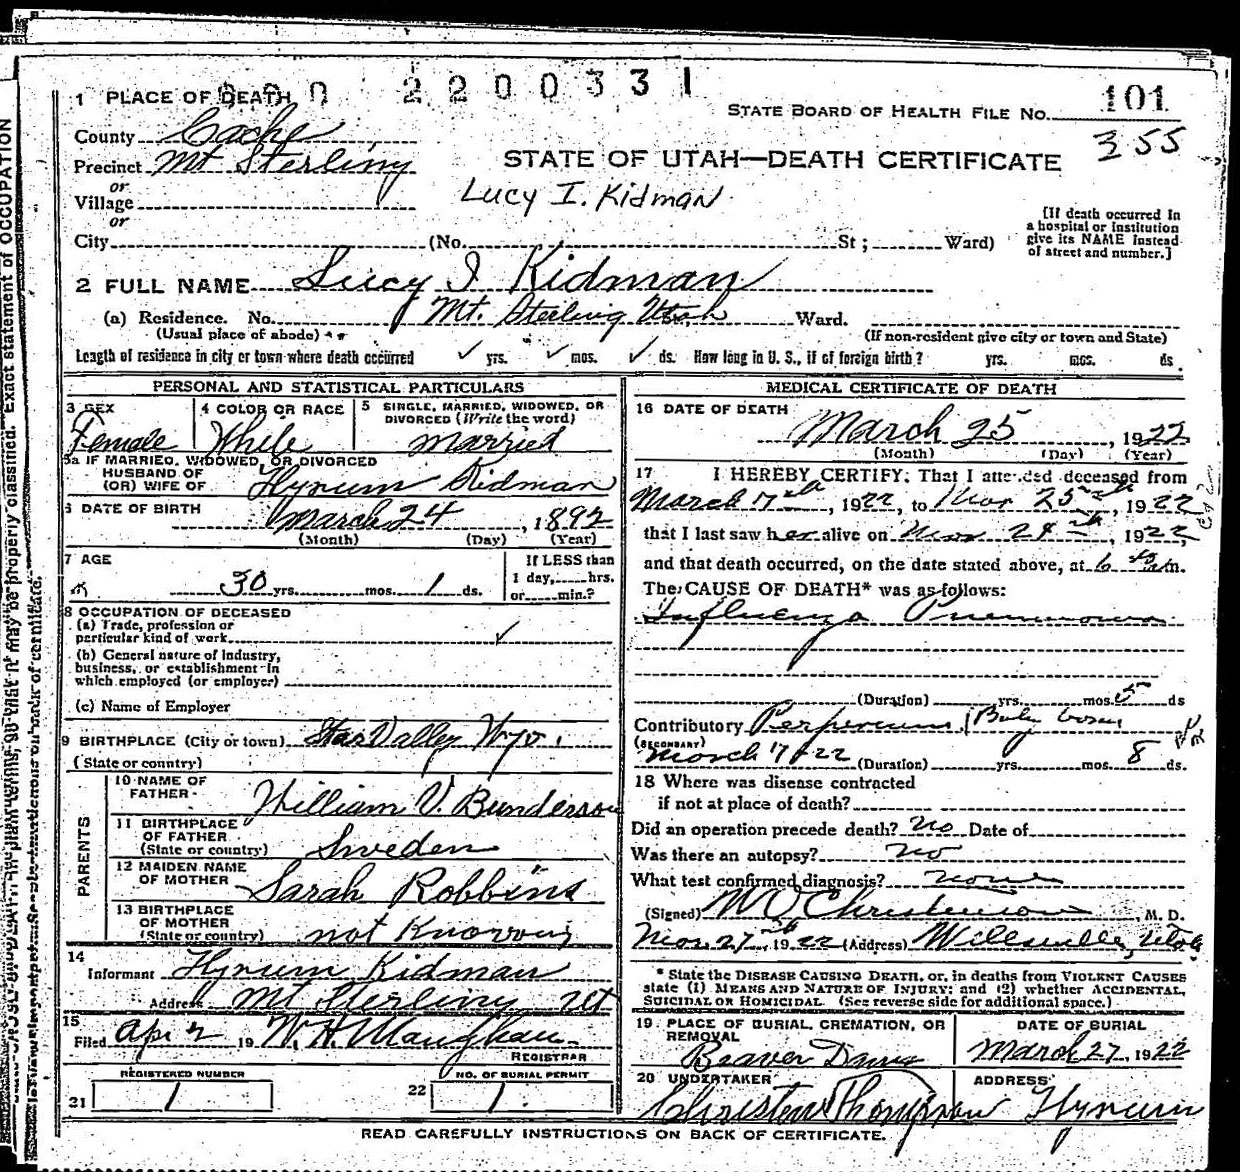 2200331
1 PLACE OF DEATH
STATE BOARD OF HEALTH FILE No. 101
355
County Cache
Precinct Mt Sterling
STATE OF UTAH—DEATH CERTIFICATE
or
Village
Lucy I. Kidman
or
City (No. St; Ward)
[If death occurred in a hospital or institution give its NAME instead of street and number.]
2 FULL NAME Lucy I Kidman
(a) Residence. No. Mt. Sterling Utah Ward.
(Usual place of abode) (If non-resident give city or town and State)
Length of residence in city or town where death occurred ✓ yrs. ✓ mos. ✓ ds. How long in U. S., if of foreign birth? yrs. mos. ds.
PERSONAL AND STATISTICAL PARTICULARS
3 SEX Female
4 COLOR OR RACE White
5 SINGLE, MARRIED, WIDOWED, OR DIVORCED (Write the word) married
5a IF MARRIED, WIDOWED, OR DIVORCED
HUSBAND OF
(OR) WIFE OF Hyrum Kidman
6 DATE OF BIRTH March 24, 1892
(Month) (Day) (Year)
7 AGE
30 yrs. mos. 1 ds.
If LESS than
1 day, hrs.
or min.?
8 OCCUPATION OF DECEASED
(a) Trade, profession or
particular kind of work ✓
(b) General nature of industry,
business, or establishment in
which employed (or employer)
(c) Name of Employer
9 BIRTHPLACE (City or town) Star Vally Wyo.
(State or country)
PARENTS
10 NAME OF
FATHER William V. Bunderson
11 BIRTHPLACE
OF FATHER
(State or country) Sweden
12 MAIDEN NAME
OF MOTHER Sarah Robbins
13 BIRTHPLACE
OF MOTHER
(State or country) not Knowing
14
Informant Hyrum Kidman
Address Mt Sterling Ut
15
Filed Apr 2 19 W. H. Maughan
REGISTRAR
REGISTERED NUMBER
21 1
NO. OF BURIAL PERMIT
22 1
MEDICAL CERTIFICATE OF DEATH
16 DATE OF DEATH
March 25, 1922
(Month) (Day) (Year)
17 I HEREBY CERTIFY: That I attended deceased from
March 7th, 1922, to Mar 25th, 1922
that I last saw her alive on Mar 24th, 1922,
and that death occurred, on the date stated above, at 6 m.
The CAUSE OF DEATH* was as follows:
Influenza Pneumonia
(Duration) yrs. mos. 5 ds
Contributory Baby born
(SECONDARY)
March 17-22 (Duration) yrs. mos. 8 ds.
18 Where was disease contracted
if not at place of death?
Did an operation precede death? no Date of
Was there an autopsy? no
What test confirmed diagnosis? none
(Signed) Christenson, M. D.
Mar. 27th, 1922 (Address) Wellsville, Utah
* State the DISEASE CAUSING DEATH, or, in deaths from VIOLENT CAUSES
state (1) MEANS AND NATURE OF INJURY; and (2) whether ACCIDENTAL,
SUICIDAL OR HOMICIDAL. (See reverse side for additional space.)
19 PLACE OF BURIAL, CREMATION, OR
REMOVAL
Beaver Dam
DATE OF BURIAL
March 27, 1922
20 UNDERTAKER
Christen Thompson
ADDRESS
Hyrum
READ CAREFULLY INSTRUCTIONS ON BACK OF CERTIFICATE.